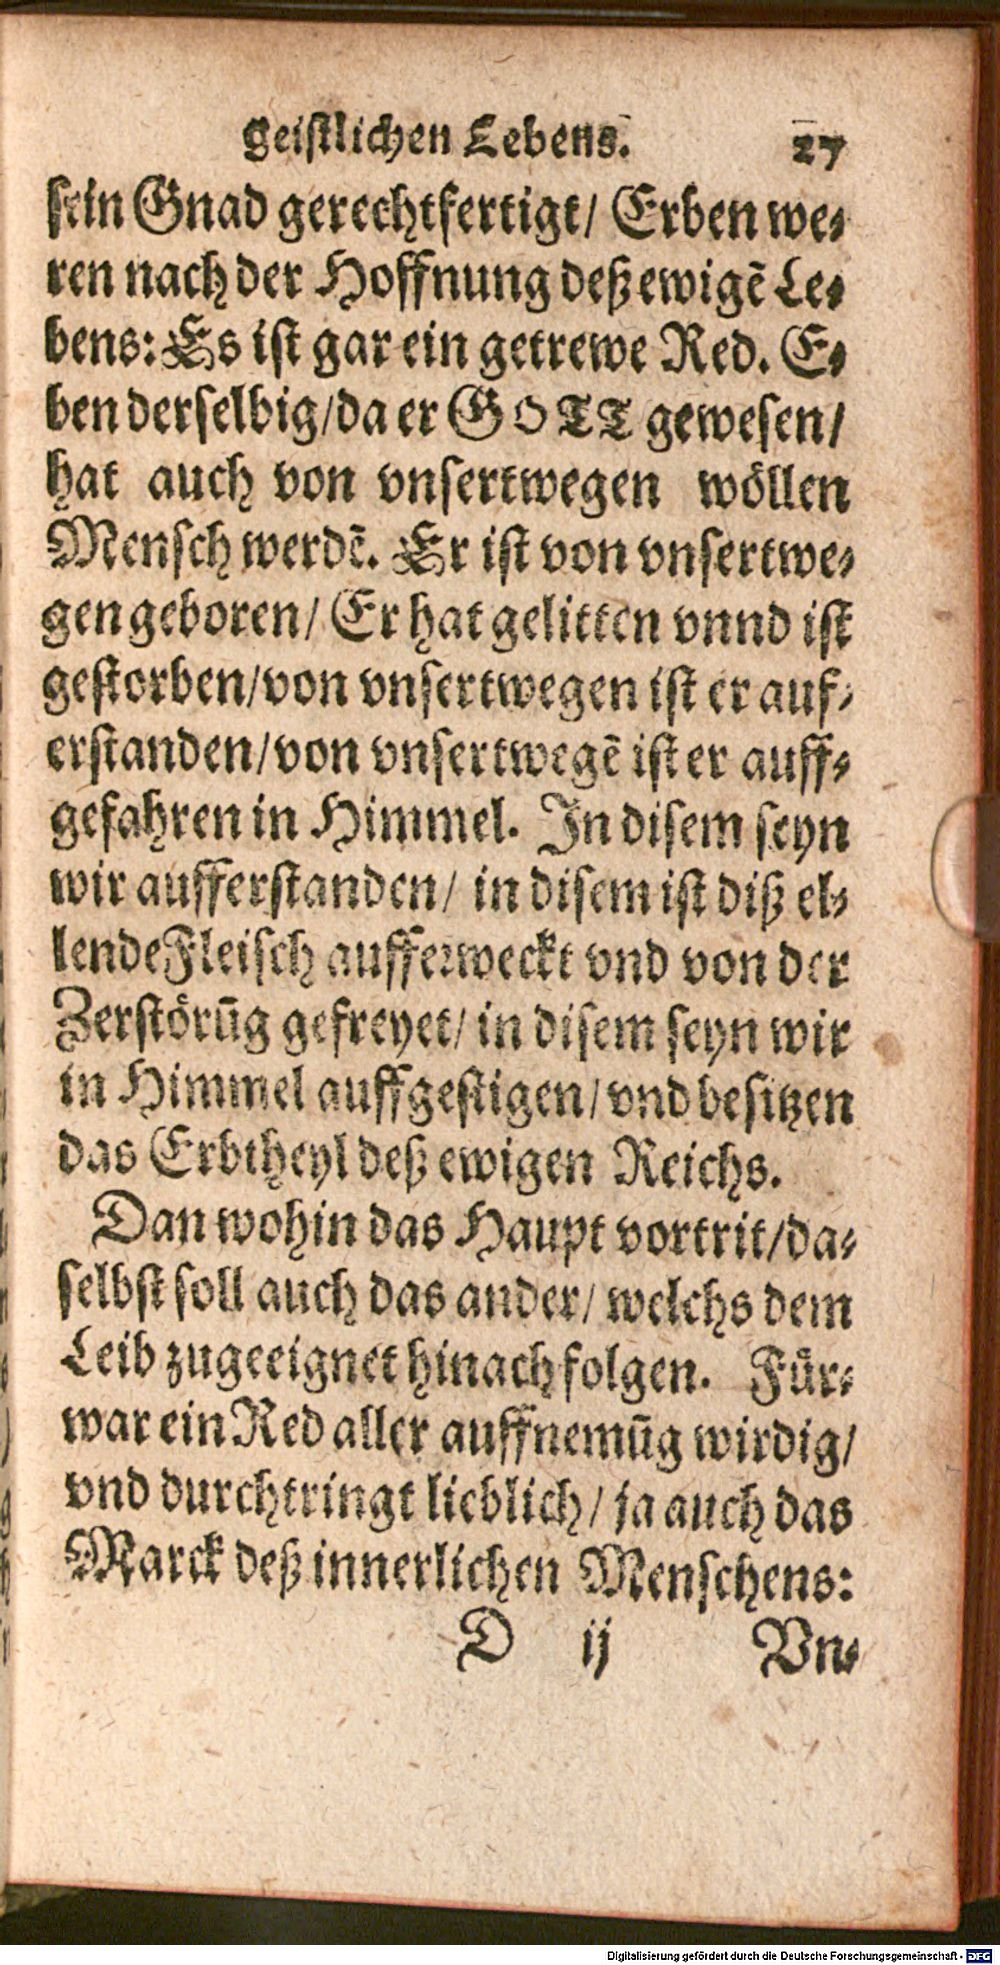 geistlichen Lebens. 27
sein Gnad gerechtfertigt/ Erben we-
ren nach der Hoffnung deß ewigẽ Le-
bens: Es ist gar ein getrewe Red. E-
ben derselbig/ da er GOTT gewesen/
hat auch von vnsertwegen wöllen
Mensch werdẽ. Er ist von vnsertwe-
gen geboren/ Er hat gelitten vnnd ist
gestorben/ von vnsertwegen ist er auf-
erstanden/ von vnsertwegẽ ist er auff-
gefahren in Himmel. In disem seyn
wir aufferstanden/ in disem ist diß el-
lende Fleisch aufferweckt vnd von der
Zerstörũg gefreyet/ in disem seyn wir
in Himmel auffgestigen/ vnd besitzen
das Erbtheyl deß ewigen Reichs.
Dan wohin das Haupt vortrit/ da-
selbst soll auch das ander/ welchs dem
Leib zugeeignet hinach folgen. Für-
war ein Red aller auffnemũg wirdig/
vnd durchtringt lieblich/ ja auch das
Marck deß innerlichen Menschens:
D ij Vn-
Digitalisierung gefördert durch die Deutsche Forschungsgemeinschaft - DFG